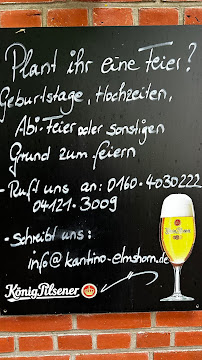 Plant ihr eine Feier?
Geburtstage, Hochzeiten,
Abi-Feier oder sonstigen
Grund zum feiern
- Ruft uns an: 0160-4030222
04121-3009
- schreibt uns:
info@kantino-elmshorn.de
König Pilsener